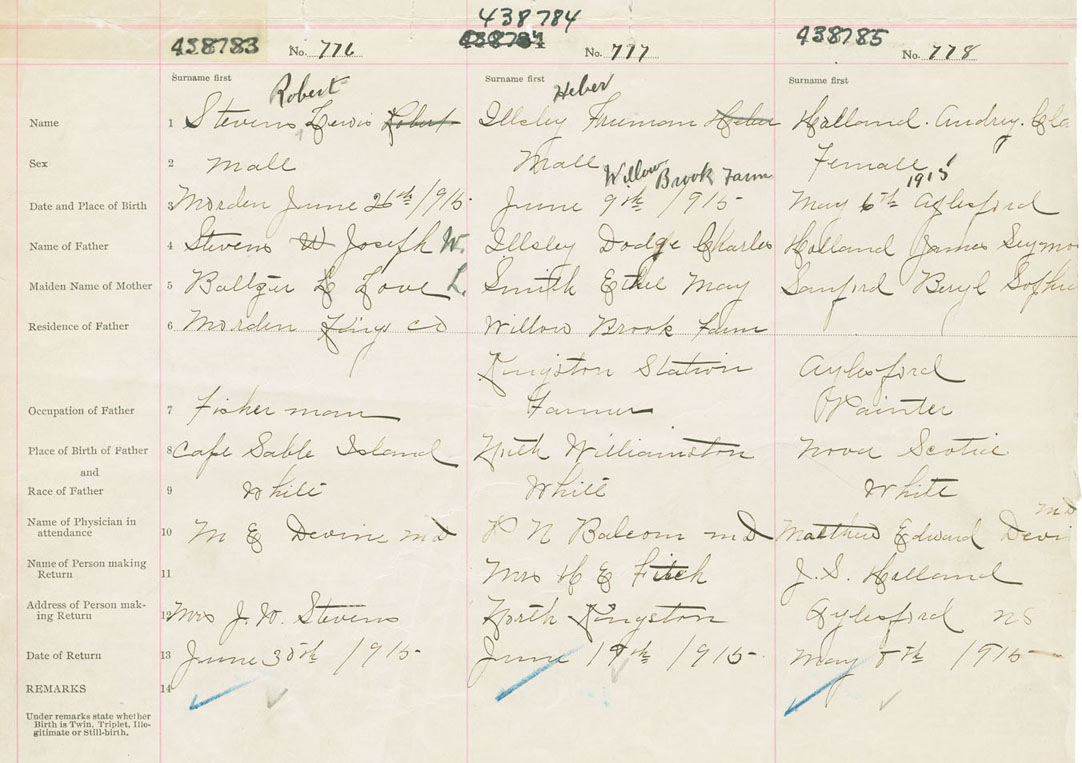 438784
438783 No. 776 No. 777 438785 No. 778
Surname first Surname first Surname first
Robert Heber
Name 1 Stevens Lewis Robert Illsley Freeman Heber Holland. Audrey.
Sex 2 Mall Mall Femall
Willow Brook Farm 1915
Date and Place of Birth 3 Morden June 26th 1915. June 9th 1915. May 6th Aylesford
Name of Father 4 Stevens W Joseph W. Illsley Dodge Charles Holland James Seymo
Maiden Name of Mother 5 Baltzer L Love L. Smith Ethel May Sanford Beryl
Residence of Father 6 Morden Kings Co Willow Brook Farm
Kingston Station Aylesford
Occupation of Father 7 Fisher man Farmer Painter
Place of Birth of Father 8 Cape Sable Island North Williamston Nova Scotia
and
Race of Father 9 White White White
Name of Physician in attendance 10 M E Devine M D P N Balcom M D Matthew Edward Devi M D
Name of Person making Return 11 Mrs H E Fitch J. S. Holland
Address of Person mak-
ing Return 12 Mrs J. W. Stevens North Kingston Aylesford NS
Date of Return 13 June 30th 1915- June 19th 1915- May 8th 1915-
REMARKS 14
Under remarks state whether
Birth is Twin, Triplet, Ille-
gitimate or Still-birth.